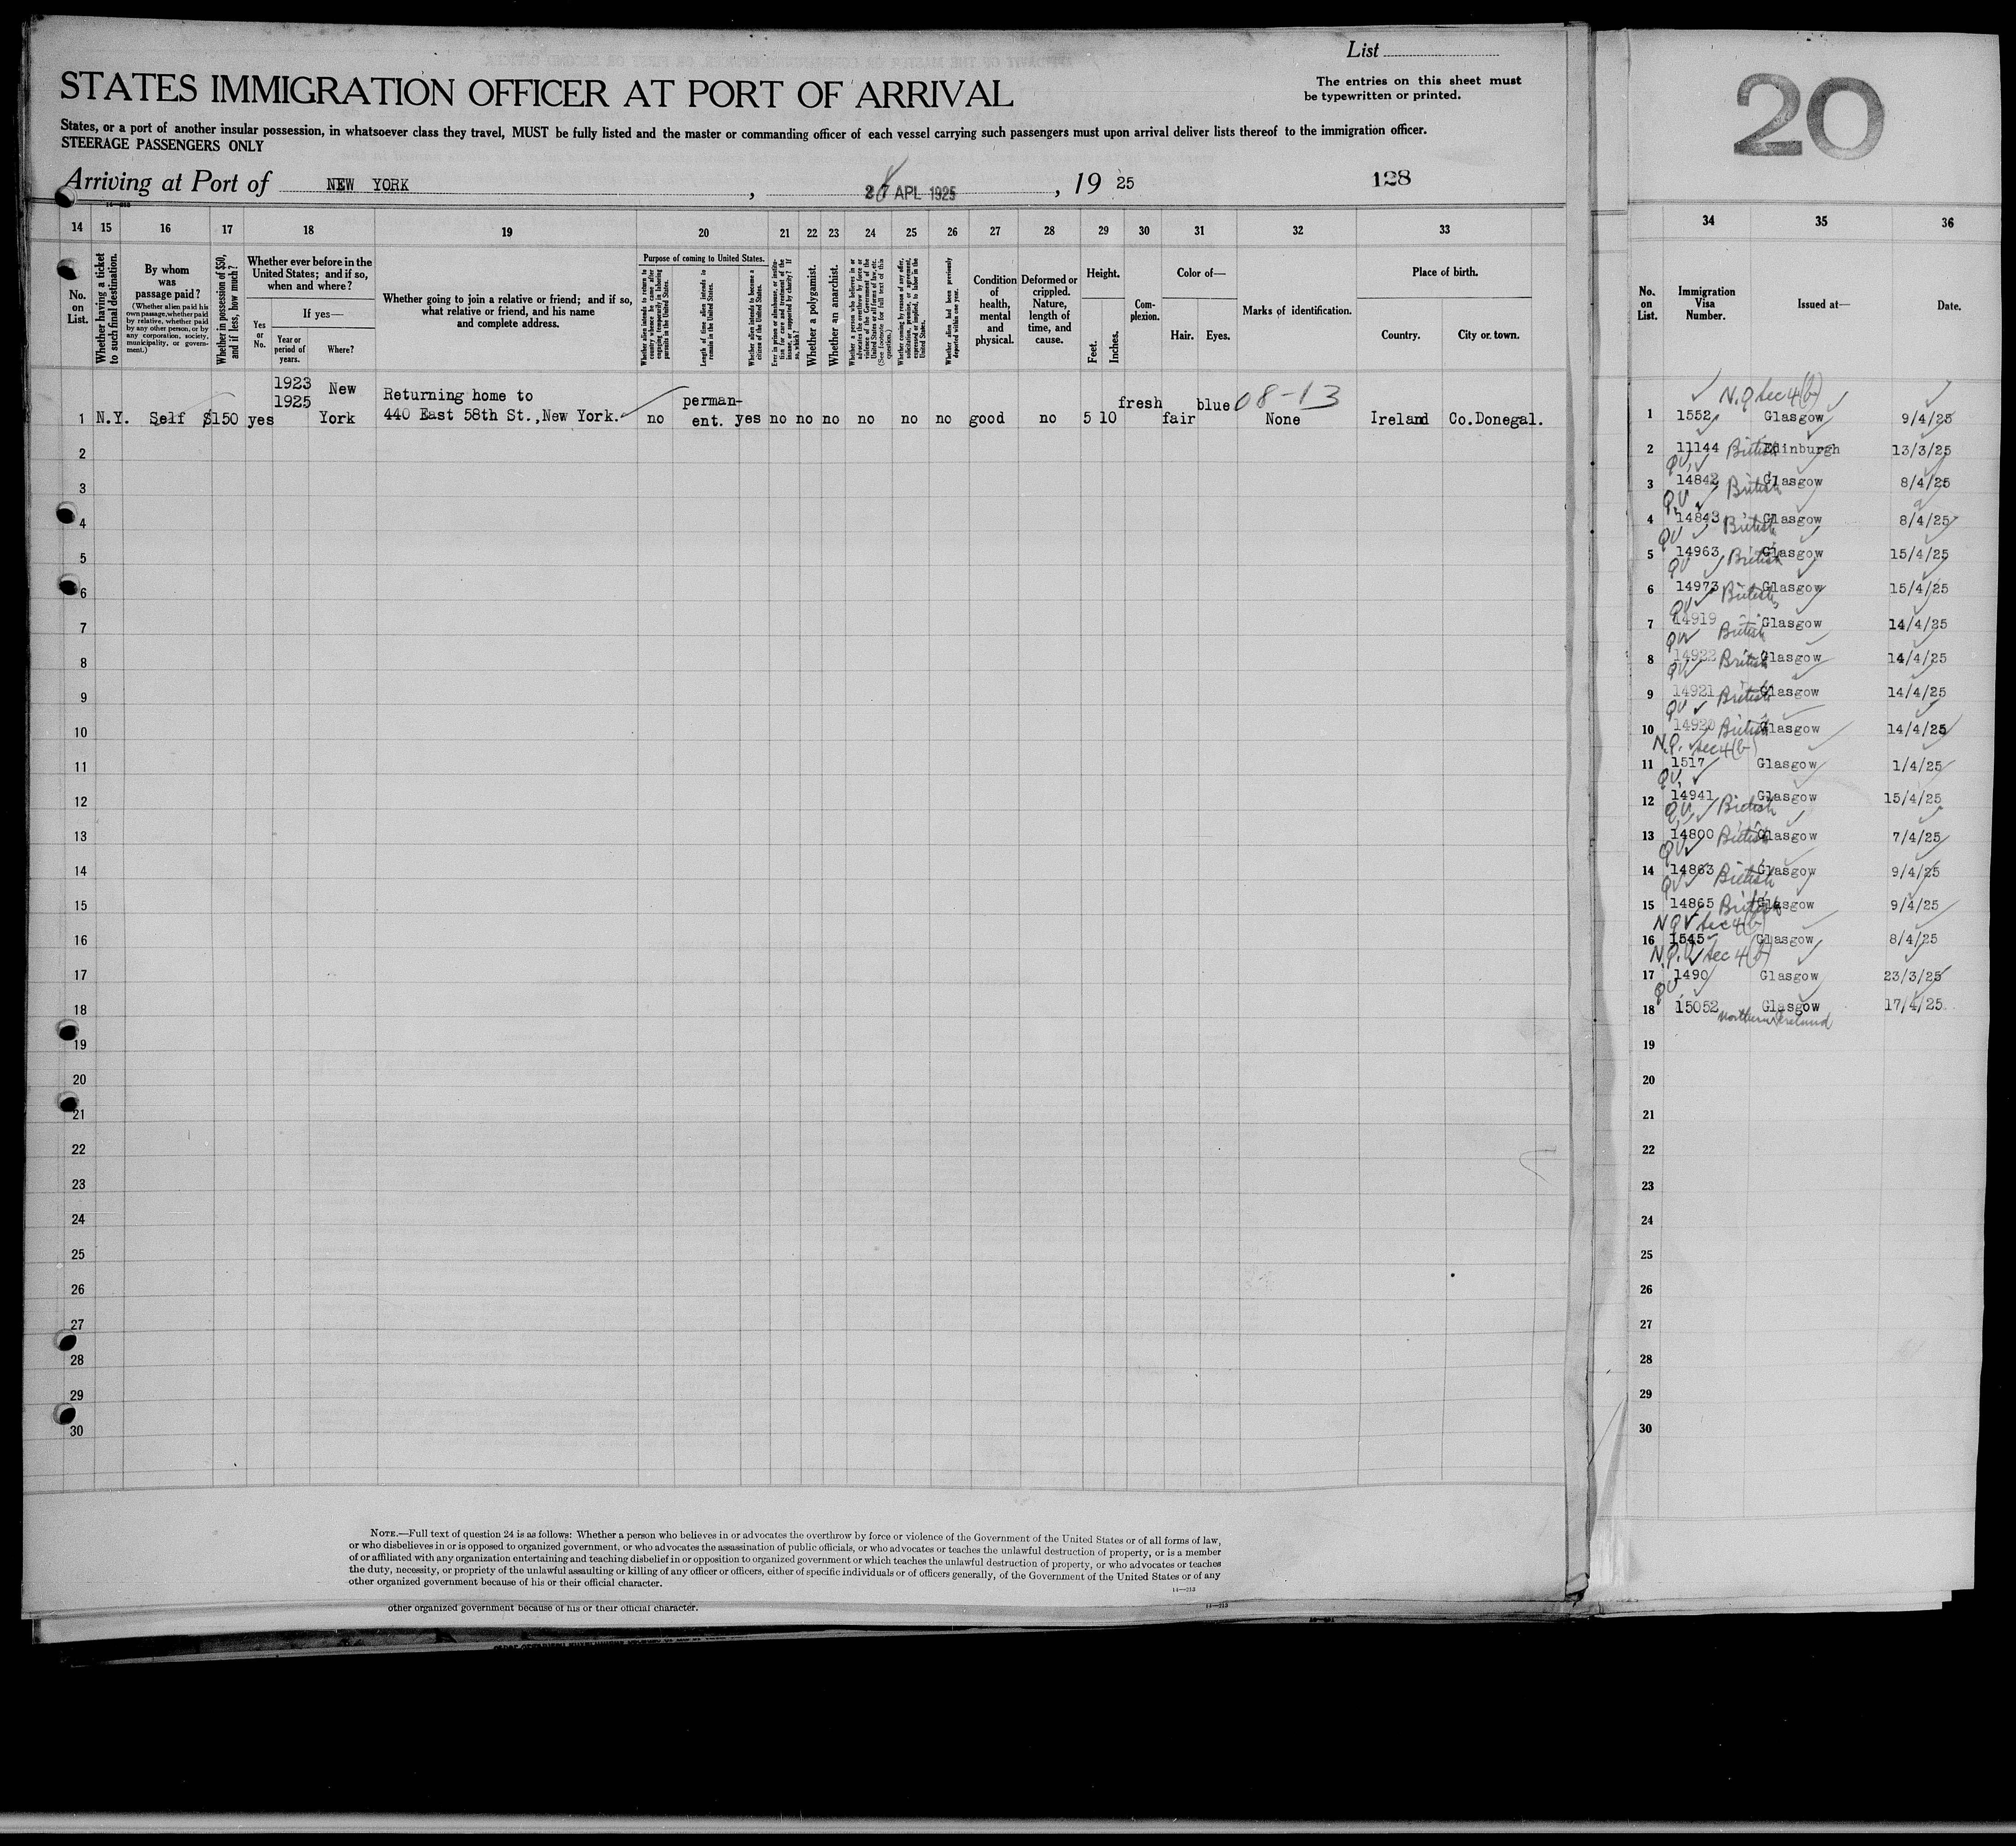 List
STATES IMMIGRATION OFFICER AT PORT OF ARRIVAL
The entries on this sheet must
be typewritten or printed.
States, or a port of another insular possession, in whatsoever class they travel, MUST be fully listed and the master or commanding officer of each vessel carrying such passengers must upon arrival deliver lists thereof to the immigration officer.
STEERAGE PASSENGERS ONLY
Arriving at Port of NEW YORK , APL 1925 , 19 25
128
14 15 16 17 18 19 20 21 22 23 24 25 26 27 28 29 30 31 32 33
No. on List.
Whether having a ticket to such final destination.
By whom was passage paid?
(Whether alien paid his own passage, whether paid by relative, whether paid by any other person, or by any corporation, society, municipality, or government.)
Whether in possession of $50, and if less, how much?
Whether ever before in the United States; and if so, when and where?
Yes or No.
If yes—
Year or period of years.
Where?
Whether going to join a relative or friend; and if so, what relative or friend, and his name and complete address.
Purpose of coming to United States.
Whether alien intends to return to country whence he came after engaging temporarily in laboring pursuits in the United States.
Length of time alien intends to remain in the United States.
Whether alien intends to become a citizen of the United States.
Ever in prison or almshouse, or institution for care and treatment of the insane, or supported by charity? If so, which?
Whether a polygamist.
Whether an anarchist.
Whether a person who believes in or advocates the overthrow by force or violence of the Government of the United States or all forms of law, etc. (See footnote for full text of this question.)
Whether coming by reason of any offer, solicitation, promise, or agreement, expressed or implied, to labor in the United States.
Whether alien had been previously deported within one year.
Condition of health, mental and physical.
Deformed or crippled. Nature, length of time, and cause.
Height.
Feet.
Inches.
Complexion.
Color of—
Hair.
Eyes.
Marks of identification.
Place of birth.
Country.
City or town.
1923 New
1925
1 N.Y. Self $150 yes York
Returning home to
440 East 58th St., New York.
no perman-
ent. yes no no no no no no good no 5 10 fresh fair blue None Ireland Co.Donegal.
08-13
2
3
4
5
6
7
8
9
10
11
12
13
14
15
16
17
18
19
20
21
22
23
24
25
26
27
28
29
30
NOTE.—Full text of question 24 is as follows: Whether a person who believes in or advocates the overthrow by force or violence of the Government of the United States or of all forms of law,
or who disbelieves in or is opposed to organized government, or who advocates the assassination of public officials, or who advocates or teaches the unlawful destruction of property, or is a member
of or affiliated with any organization entertaining and teaching disbelief in or opposition to organized government or which teaches the unlawful destruction of property, or who advocates or teaches
the duty, necessity, or propriety of the unlawful assaulting or killing of any officer or officers, either of specific individuals or of officers generally, of the Government of the United States or of any
other organized government because of his or their official character.
14—213
other organized government because of his or their official character.
14—213
20
34 35 36
No. on List.
Immigration Visa Number.
Issued at—
Date.
N.Q Sec 4(b)
1 1552 Glasgow 9/4/25
2 11144 British Edinburgh 13/3/25
QV
3 14842 British Glasgow 8/4/25
QV
4 14843 British Glasgow 8/4/25
QV
5 14963 British Glasgow 15/4/25
QV
6 14973 British Glasgow 15/4/25
QV
7 14919 British Glasgow 14/4/25
QV
8 14922 British Glasgow 14/4/25
QV
9 14921 British Glasgow 14/4/25
QV
10 14920 British Glasgow 14/4/25
N.Q. Sec 4(b)
11 1517 Glasgow 1/4/25
QV
12 14941 British Glasgow 15/4/25
QV
13 14800 British Glasgow 7/4/25
QV
14 14863 British Glasgow 9/4/25
QV
15 14865 British Glasgow 9/4/25
NQV Sec 4(b)
16 1545 Glasgow 8/4/25
N.Q.V Sec 4(b)
17 1490 Glasgow 23/3/25
QV
18 15052 Glasgow 17/4/25
Northern Ireland
19
20
21
22
23
24
25
26
27
28
29
30